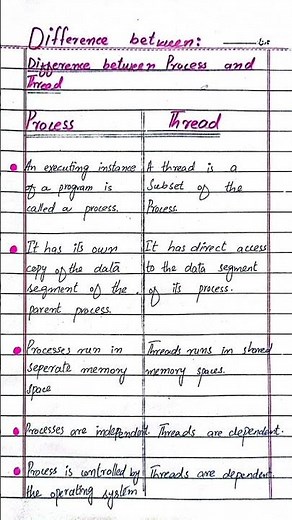 Difference between:
Difference between Process and
Thread
Process Thread
An executing instance A thread is a
of a program is Subset of the
called a process. Process.
It has its own It has direct access
copy of the data to the data segment
segment of the of its process.
parent process.
Processes run in Threads runs in shared
seperate memory memory spaces.
space
Processes are independent. Threads are dependent.
Process is controlled by Threads are dependent
the operating system